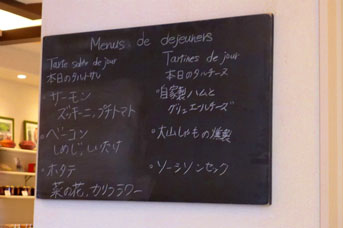 Menus de dejeuners
Tarte salés de jour
本日のタルトサレ
・サーモン
ズッキーニ、プチトマト
・ベーコン
しめじ、しいたけ
・ホタテ
菜の花、カリフラワー
Tartines de jour
本日のタルチーヌ
・自家製ハムと
グリュエールチーズ
・大山しゃもの燻製
・ソーシソンセック